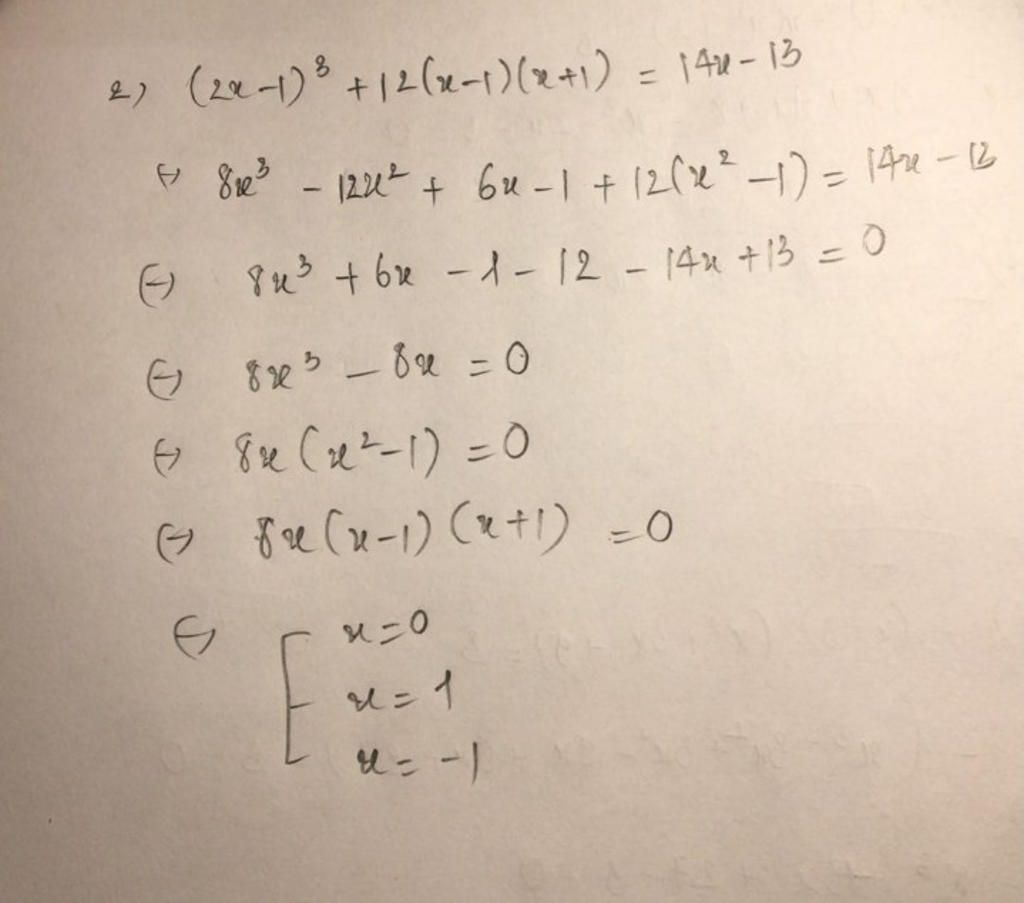 2) (2x-1)³ + 12(x-1)(x+1) = 14x - 13
⇔ 8x³ - 12x² + 6x - 1 + 12(x² - 1) = 14x - 13
⇔ 8x³ + 6x - 1 - 12 - 14x + 13 = 0
⇔ 8x³ - 8x = 0
⇔ 8x(x² - 1) = 0
⇔ 8x(x-1)(x+1) = 0
⇔ [ x = 0
x = 1
x = -1